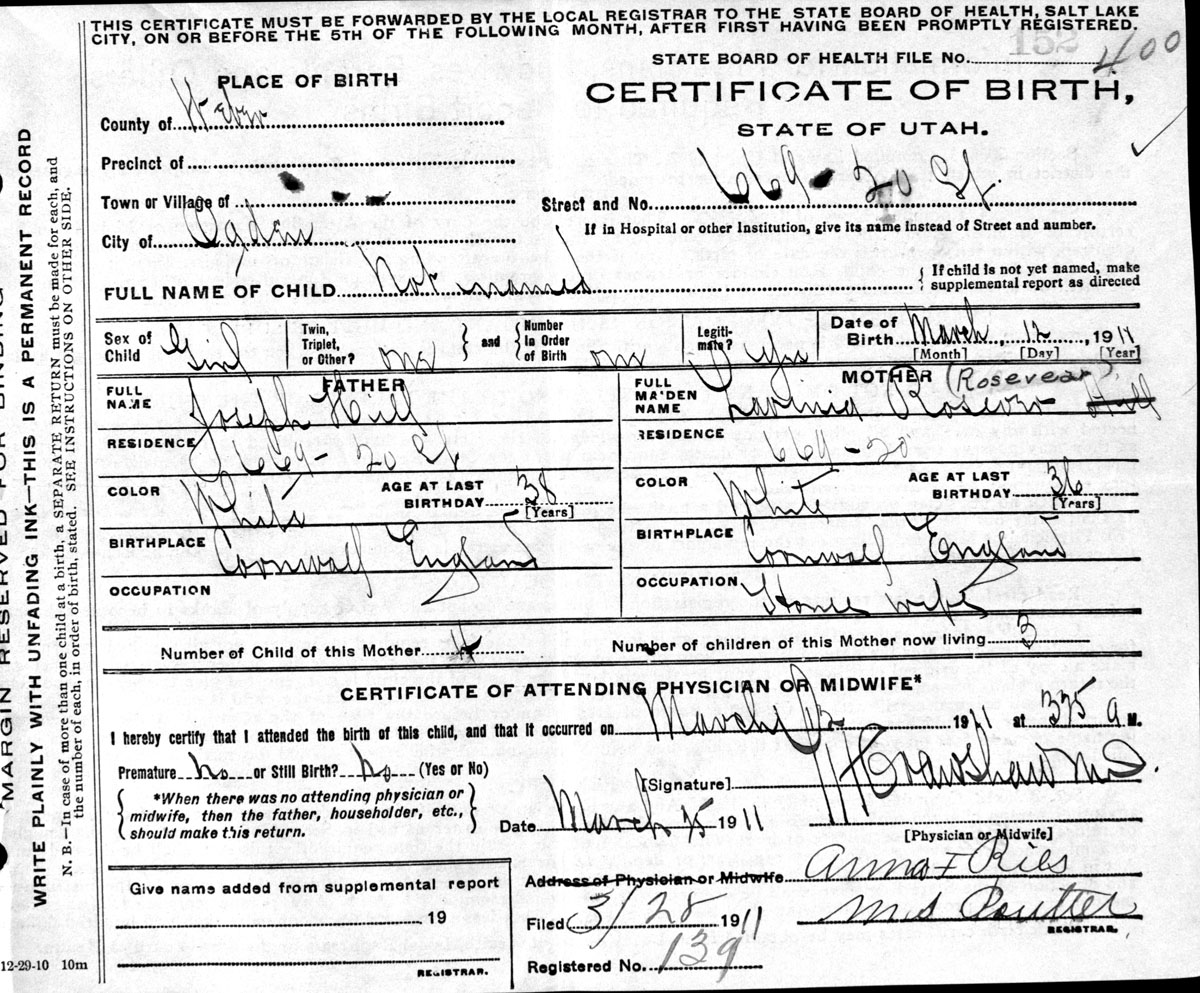 THIS CERTIFICATE MUST BE FORWARDED BY THE LOCAL REGISTRAR TO THE STATE BOARD OF HEALTH, SALT LAKE
CITY, ON OR BEFORE THE 5TH OF THE FOLLOWING MONTH, AFTER FIRST HAVING BEEN PROMPTLY REGISTERED.
152
STATE BOARD OF HEALTH FILE No. 400
PLACE OF BIRTH
CERTIFICATE OF BIRTH,
STATE OF UTAH.
County of Weber
Precinct of
Town or Village of
Street and No. 669 - 20 St.
City of Ogden
If in Hospital or other Institution, give its name instead of Street and number.
FULL NAME OF CHILD Not named
{ If child is not yet named, make supplemental report as directed
Sex of Child Girl
Twin, Triplet, or Other? one } and { Number In Order of Birth one
Legitimate? yes
Date of Birth March, 12, 1911
[Month] [Day] [Year]
FATHER
FULL NAME Joseph Hill
RESIDENCE 669 - 20 St
COLOR White
AGE AT LAST BIRTHDAY 38 [Years]
BIRTHPLACE Cornwall England
OCCUPATION
MOTHER (Rosevear)
FULL MAIDEN NAME Lavinia Hill
RESIDENCE 669 - 20
COLOR White
AGE AT LAST BIRTHDAY 36 [Years]
BIRTHPLACE Cornwall England
OCCUPATION House wife
Number of Child of this Mother 4
Number of children of this Mother now living 3
CERTIFICATE OF ATTENDING PHYSICIAN OR MIDWIFE*
I hereby certify that I attended the birth of this child, and that it occurred on March 12 1911 at 335 a M.
Premature No or Still Birth? No (Yes or No)
{ *When there was no attending physician or midwife, then the father, householder, etc., should make this return. }
[Signature] Crawshaw M.D.
Date March 15 1911
[Physician or Midwife]
Give name added from supplemental report
19
REGISTRAR.
Address of Physician or Midwife Anna F Ries
Filed 3/28 1911
REGISTRAR.
Registered No. 139
12-29-10 10m
MARGIN RESERVED FOR BINDING
WRITE PLAINLY WITH UNFADING INK—THIS IS A PERMANENT RECORD
N. B.—In case of more than one child at a birth, a SEPARATE RETURN must be made for each, and
the number of each, in order of birth, stated. SEE INSTRUCTIONS ON OTHER SIDE.